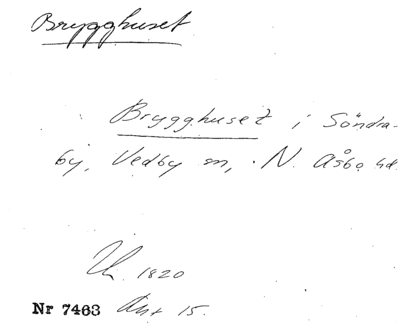 Brygghuset
Brygghuset i Söndra-
by, Vedby sn, N. Åsbo hd.
1820
Nr 7463 Ant 15.